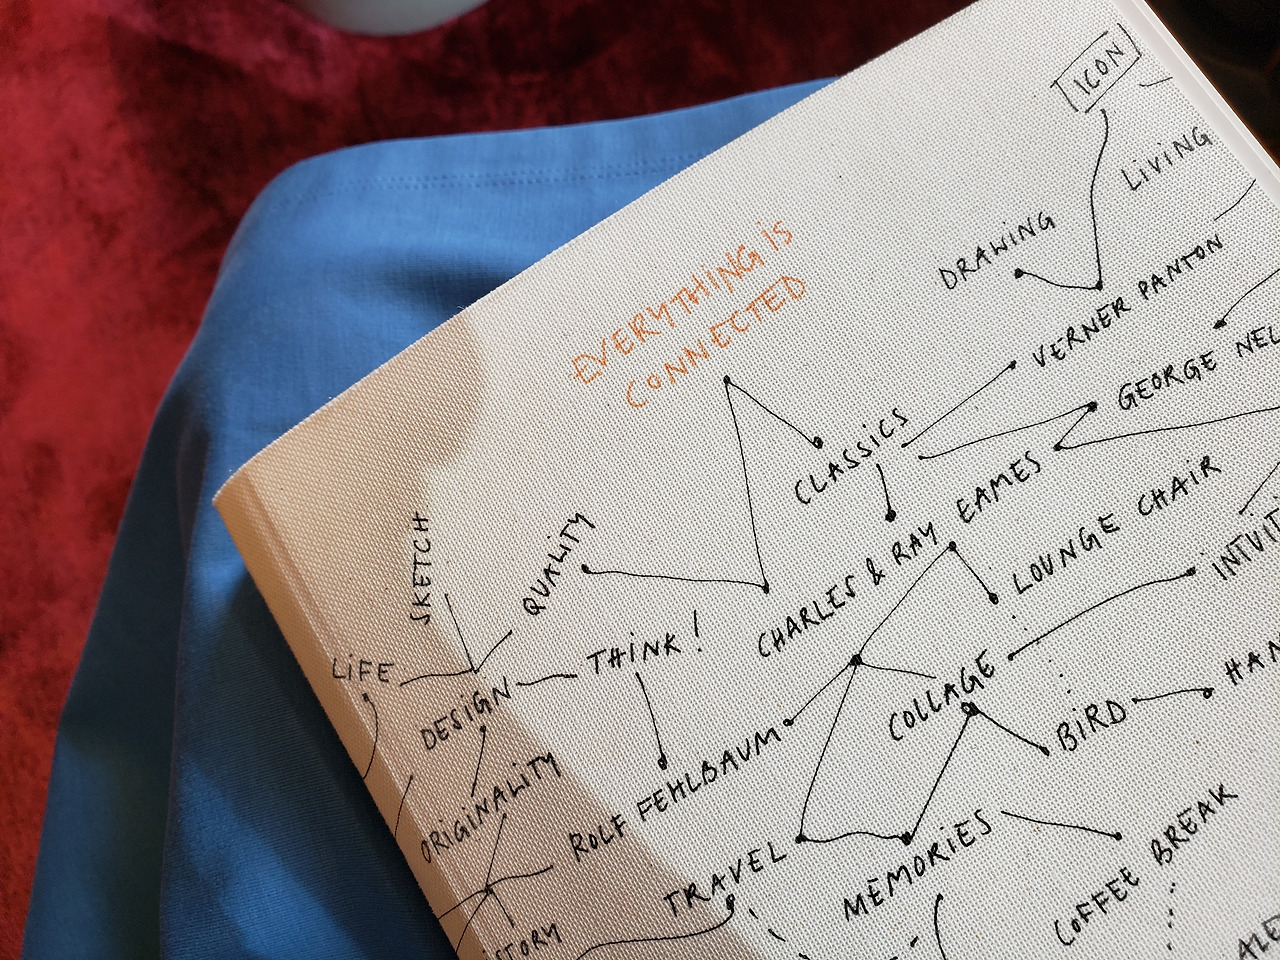 ICON
LiVING
DRAWING
VERNER PANTON
EVERYTHING iS
CONNECTED
GEORGE NEL
CLASSICS
CHARLES & RAY EAMES
LOUNGE CHAIR
SKETCH
QUALiTY
THiNK!
LiFE
DESiGN
COLLAGE
INTUIT
BiRD
HAN
ORiGiNALiTY
ROLF FEHLBAUM
TRAVEL
MEMORiES
COFFEE BREAK
STORY
ALE